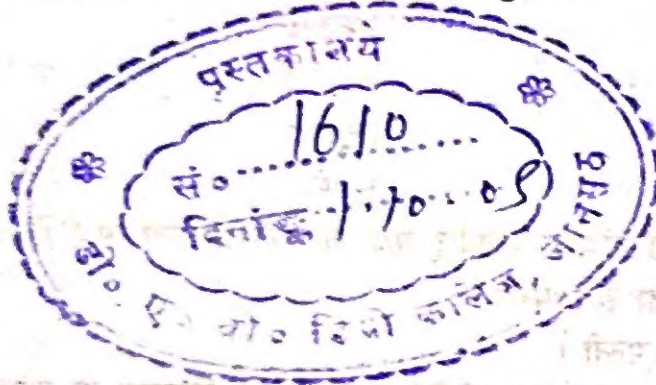 पुस्तकालय
सं० 1610
दिनांक 1.10.05
डी० ए० वी० डिग्री कालेज,